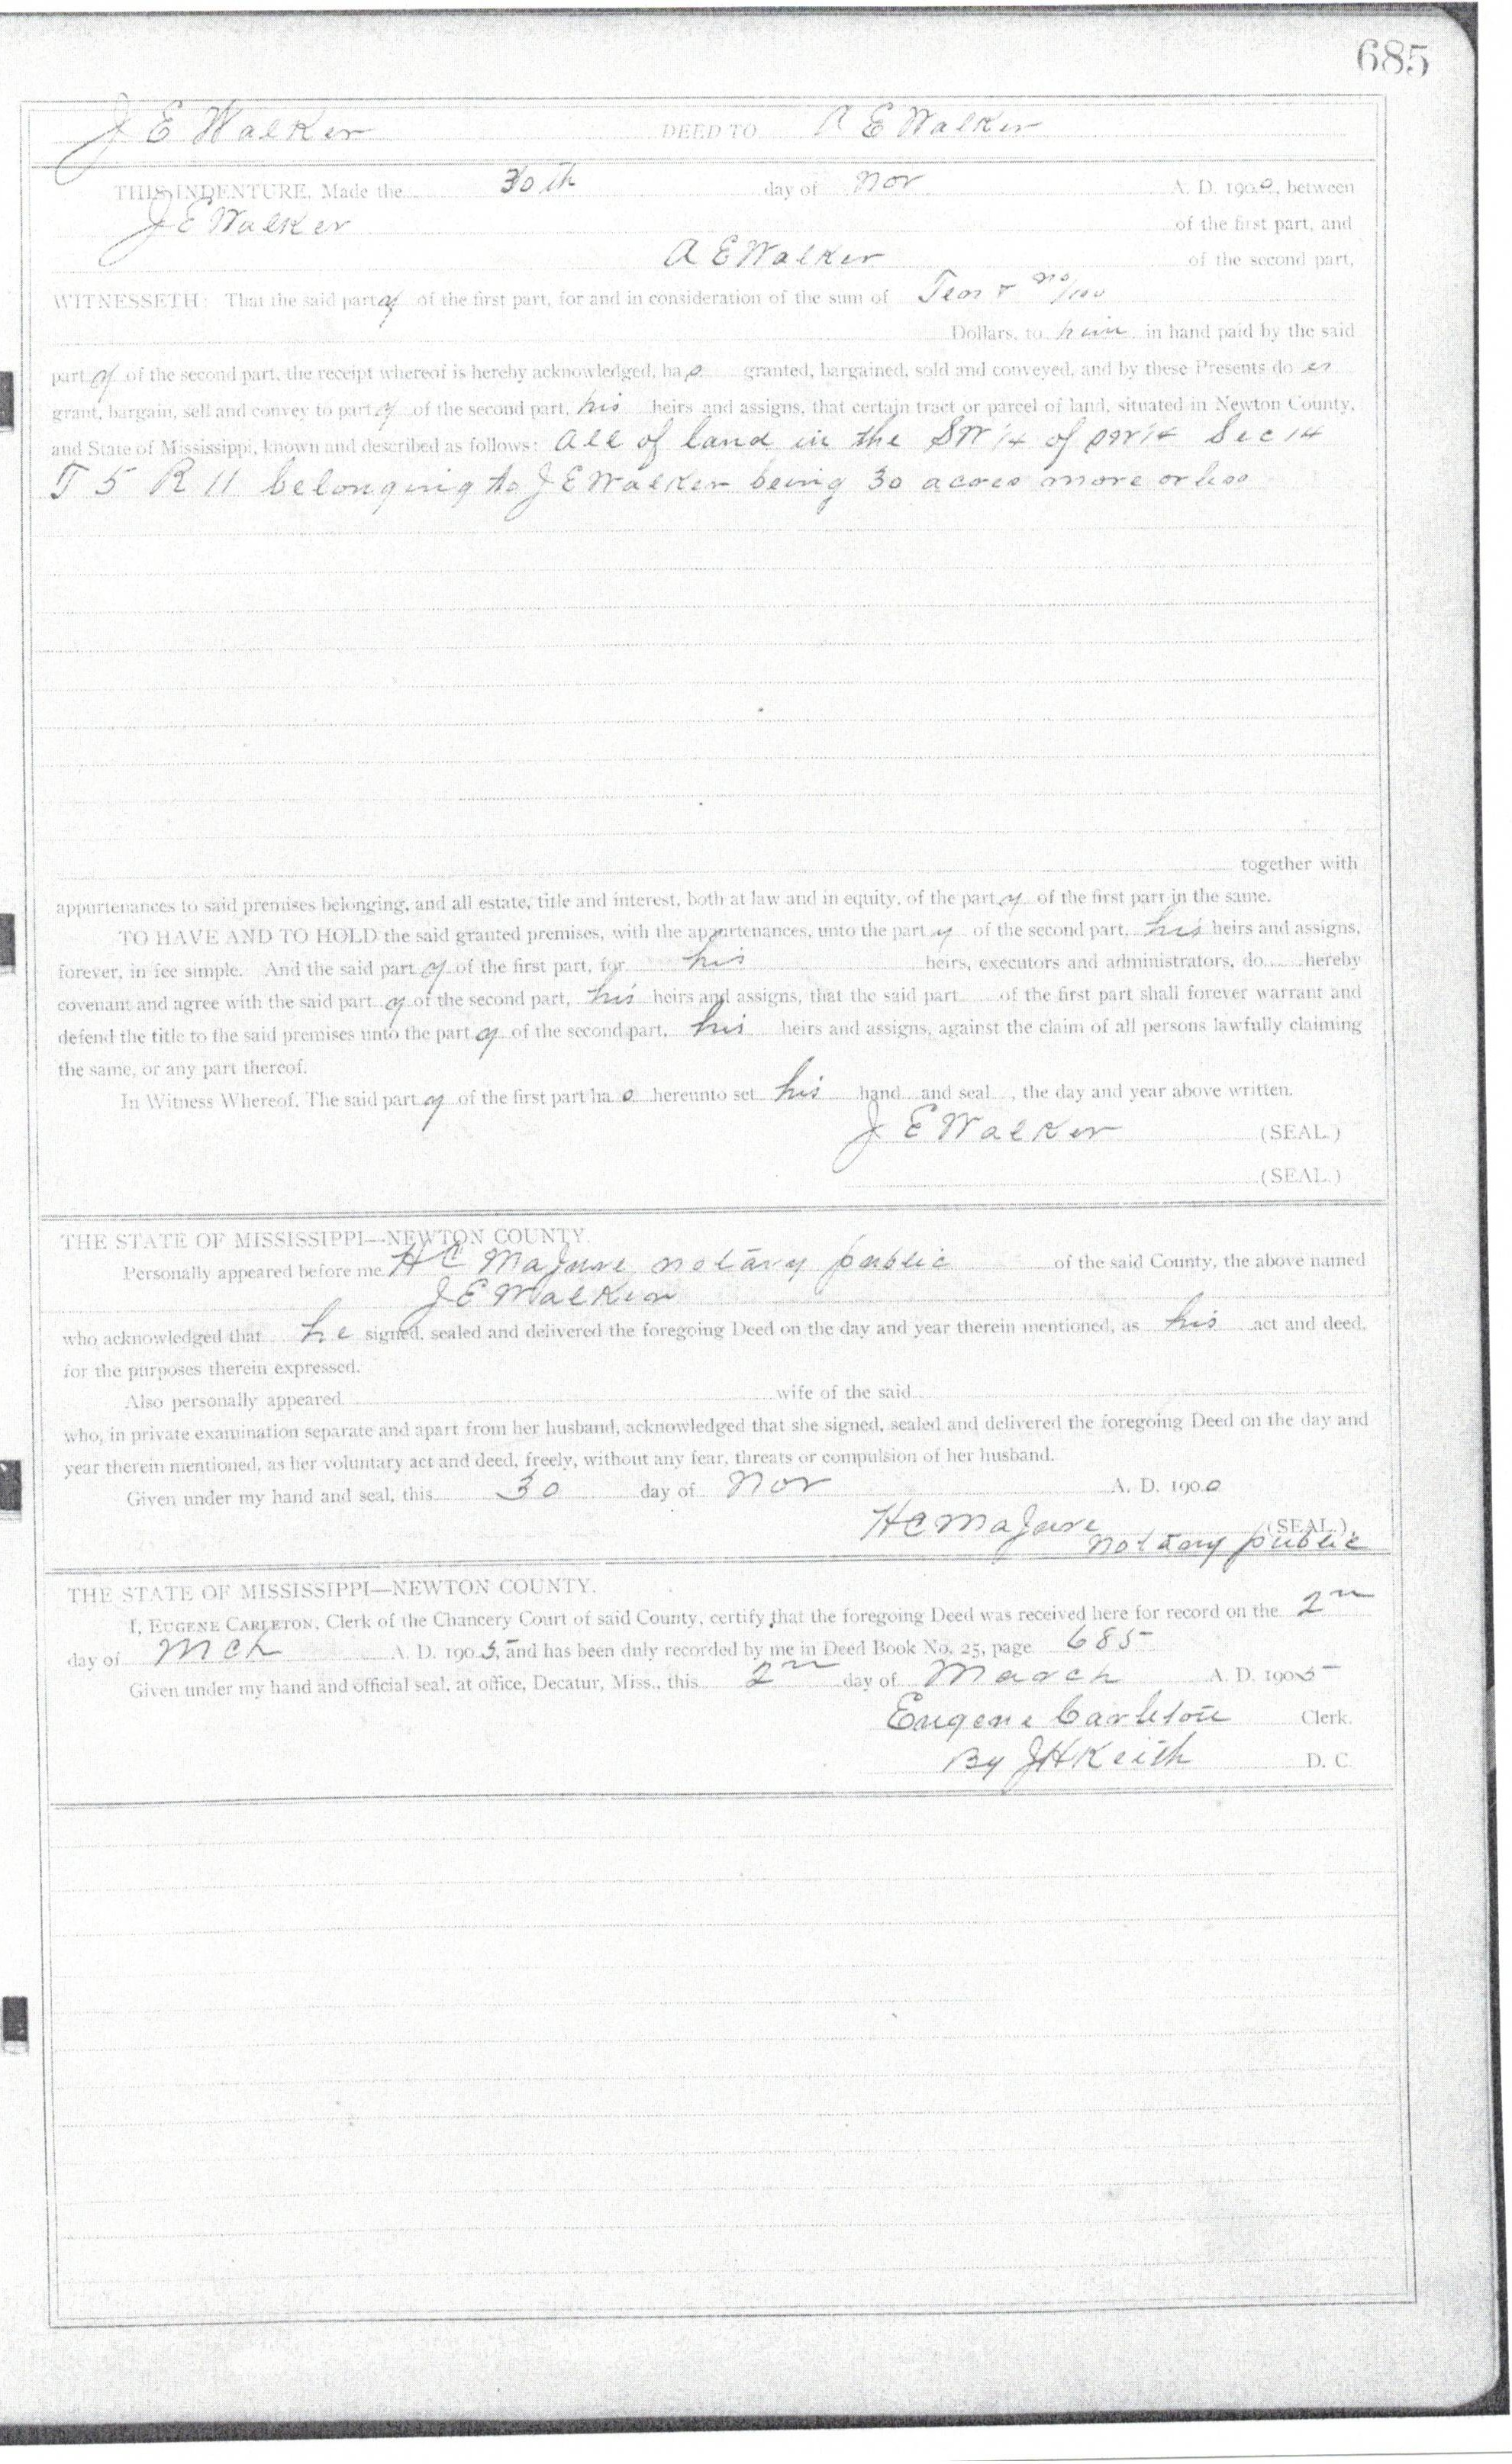 685
J E Walker DEED TO A E Walker
THIS INDENTURE, Made the 30th day of Nov A. D. 1900, between
J E Walker of the first part, and
A E Walker of the second part,
WITNESSETH: That the said party of the first part, for and in consideration of the sum of Ten & no/100
Dollars, to him in hand paid by the said
party of the second part, the receipt whereof is hereby acknowledged, has granted, bargained, sold and conveyed, and by these Presents do es
grant, bargain, sell and convey to party of the second part, his heirs and assigns, that certain tract or parcel of land, situated in Newton County,
and State of Mississippi, known and described as follows: All of land in the SW 1/4 of SW 1/4 Sec 14
T 5 R 11 belonging to J E Walker being 30 acres more or less
together with
appurtenances to said premises belonging, and all estate, title and interest, both at law and in equity, of the party of the first part in the same.
TO HAVE AND TO HOLD the said granted premises, with the appurtenances, unto the party of the second part, his heirs and assigns,
forever, in fee simple. And the said party of the first part, for his heirs, executors and administrators, do hereby
covenant and agree with the said party of the second part, his heirs and assigns, that the said part of the first part shall forever warrant and
defend the title to the said premises unto the party of the second part, his heirs and assigns, against the claim of all persons lawfully claiming
the same, or any part thereof.
In Witness Whereof, The said party of the first part has hereunto set his hand and seal , the day and year above written.
J E Walker (SEAL.)
(SEAL.)
THE STATE OF MISSISSIPPI—NEWTON COUNTY.
Personally appeared before me H C Majure notary public of the said County, the above named
J E Walker
who acknowledged that he signed, sealed and delivered the foregoing Deed on the day and year therein mentioned, as his act and deed,
for the purposes therein expressed.
Also personally appeared wife of the said
who, in private examination separate and apart from her husband, acknowledged that she signed, sealed and delivered the foregoing Deed on the day and
year therein mentioned, as her voluntary act and deed, freely, without any fear, threats or compulsion of her husband.
Given under my hand and seal, this 30 day of Nov A. D. 1900
H C Majure (SEAL.)
notary public
THE STATE OF MISSISSIPPI—NEWTON COUNTY.
I, EUGENE CARLETON, Clerk of the Chancery Court of said County, certify that the foregoing Deed was received here for record on the 2nd
day of Mch A. D. 1905, and has been duly recorded by me in Deed Book No. 25, page 685
Given under my hand and official seal, at office, Decatur, Miss., this 2nd day of March A. D. 1905
Eugene Carleton Clerk.
By J H Keith D. C.